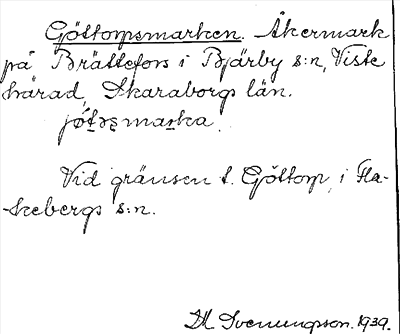 Göttorpsmarken. Åkermark
på Brättefors i Bjärby s:n, Viste
härad, Skaraborgs län.
Vid gränsen t. Göttorp i Fla-
kebergs s:n.
Svenungson. 1939.